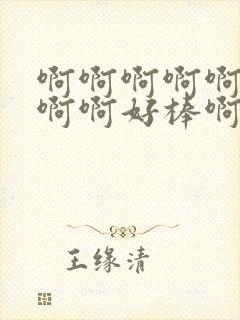 啊啊啊啊啊
啊啊好棒啊
王缘清